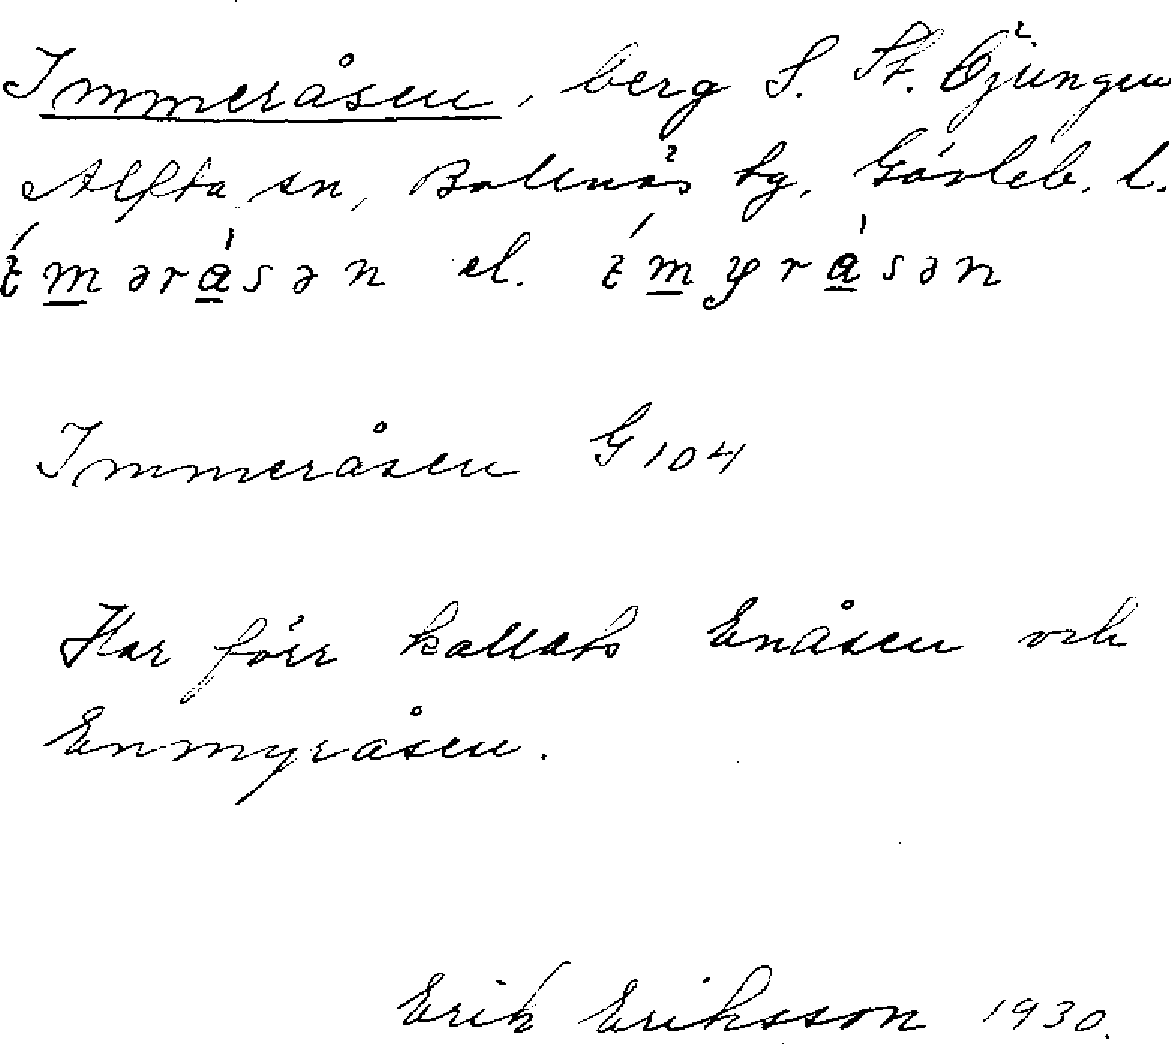 Immeråsen, berg S. St. Öjungen
Alfta sn, Bollnäs tg, Gävleb. l.
ímərásən el. ímyrásən
Immeråsen G 104
Har förr kallats Enåsen och
Enmyråsen.
Erik Eriksson 1930.